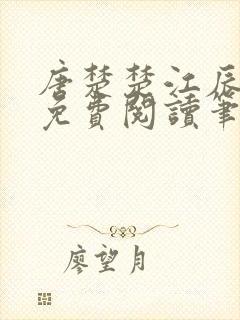 唐楚楚江辰
免費閱讀筆
廖望月